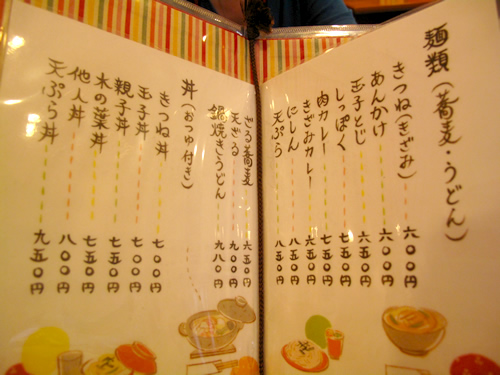 麺類(蕎麦・うどん)
きつね(きざみ) 六〇〇円
あんかけ 六〇〇円
玉子とじ 六五〇円
しっぽく 七五〇円
肉カレー 七五〇円
きざみカレー 六五〇円
にしん 八五〇円
天ぷら 八五〇円
ざる蕎麦 六五〇円
天ざる 九〇〇円
鍋焼きうどん 九八〇円
丼(おつゆ付き)
きつね丼 七〇〇円
玉子丼 七〇〇円
親子丼 七五〇円
木の葉丼 七五〇円
他人丼 八〇〇円
天ぷら丼 九五〇円